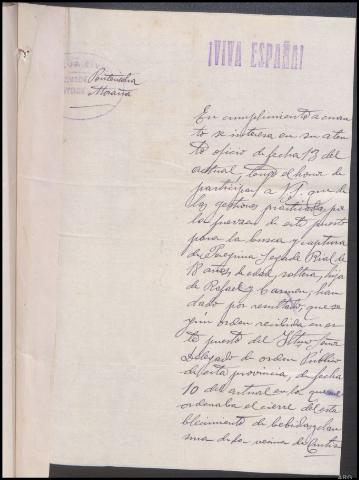 ¡VIVA ESPAÑA!
Pontevedra
Moraña
En cumplimiento a cuan
to se interesa en su aten
to oficio de fecha 13 del
actual, tengo el honor de
participar a V.S. que de
las gestiones practicadas por
la fuerza de este puesto
para la busca y captura
de Segade Rial de
18 años de edad, soltera, hija
de Rafael y Carmen, han
dado por resultado, que se
gún orden recibida en es
te puesto del Iltmo. Señor
Delegado de orden Público
de esta provincia, de fecha
10 del actual en la que se
ordenaba el cierre del esta
blecimiento de bebidas y clau
sura de los